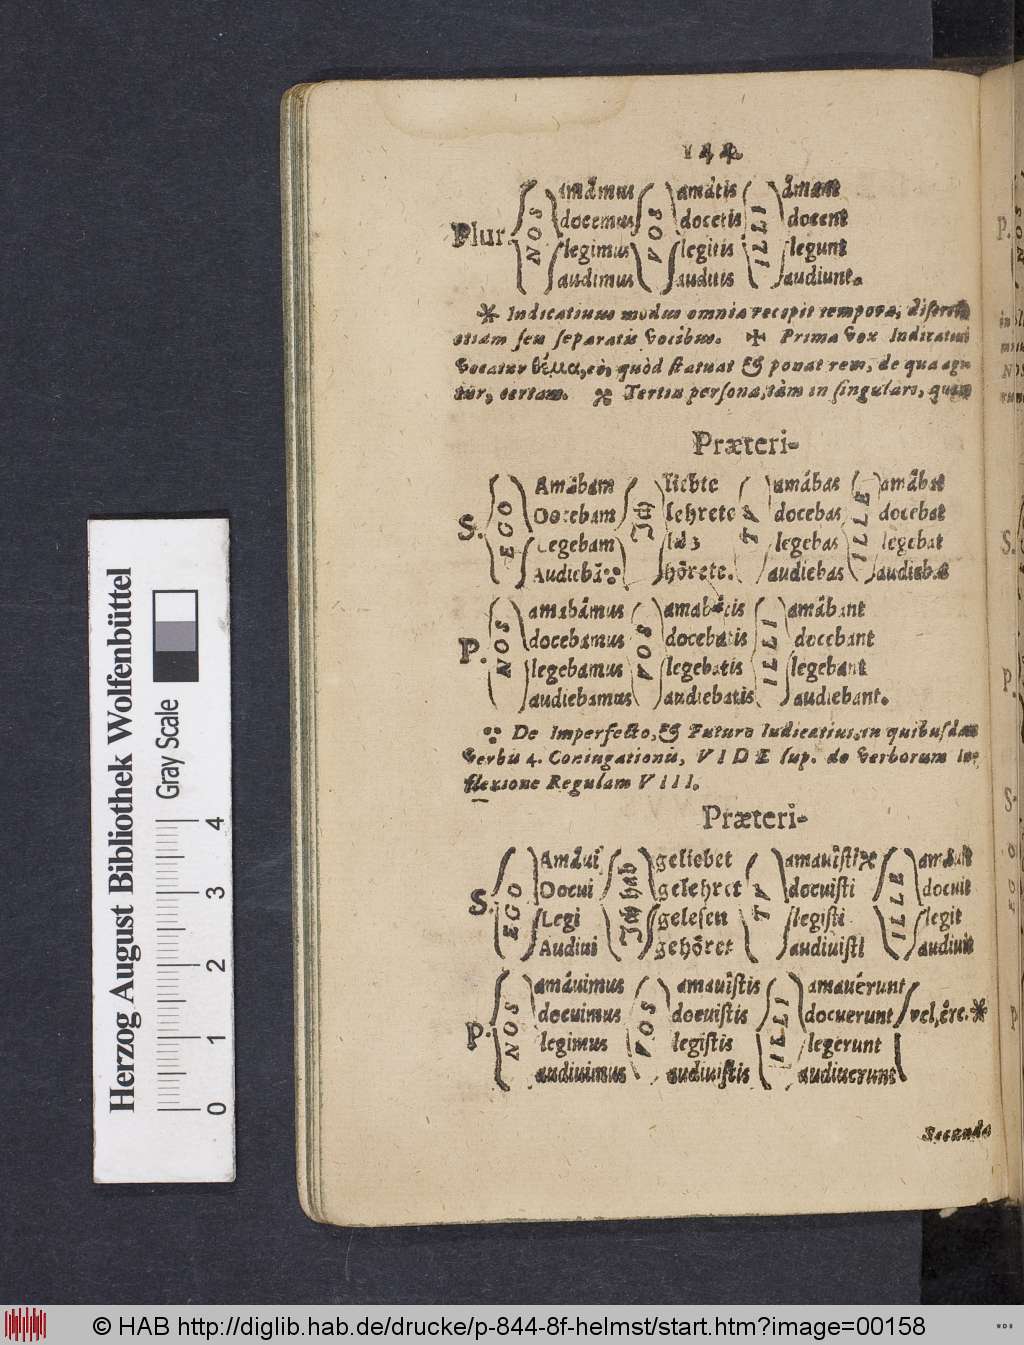 144
amâmus amâtis âmant
docemus docetis docent
Plur. NOS VOS ILLI
legimus legitis legunt
audimus auditis audiunt.
* Indicatiuus modus omnia recipit tempora, discretis
etiam seu separatis vocibus. ✠ Prima vox Indicatiui
vocatur θέμα, eò, quòd statuat & ponat rem, de qua agi-
tur, certam. Tertia persona, tàm in singulari, quàm
Præteri-
Amâbam liebte amâbas amâbat
Docebam lehrete docebas docebat
S. EGO Ich TV ILLE
Legebam laß legebas legebat
Audiebã hörete. audiebas audiebat
amabâmus amabâtis amâbant
docebamus docebatis docebant
P. NOS VOS ILLI
legebamus legebatis legebant
audiebamus audiebatis audiebant.
De Imperfecto, & Futuro Indicatiui, in quibusdam
verbis 4. Coniugationis, VIDE sup. de verborum In-
flexione Regulam VIII.
Præteri-
Amâui geliebet amauîsti* amâuit
Docui gelehret docuisti docuit
S. EGO Ich hab TV ILLE
Legi gelesen legisti legit
Audiui gehöret audiuisti audiuit
amâuimus amauîstis amauérunt
docuimus docuistis docuerunt vel, êre. *
P. NOS VOS ILLI
legimus legistis legerunt
audiuimus audiuistis audiuerunt
Secunda
Herzog August Bibliothek Wolfenbüttel
Gray Scale
0 1 2 3 4
© HAB http://diglib.hab.de/drucke/p-844-8f-helmst/start.htm?image=00158